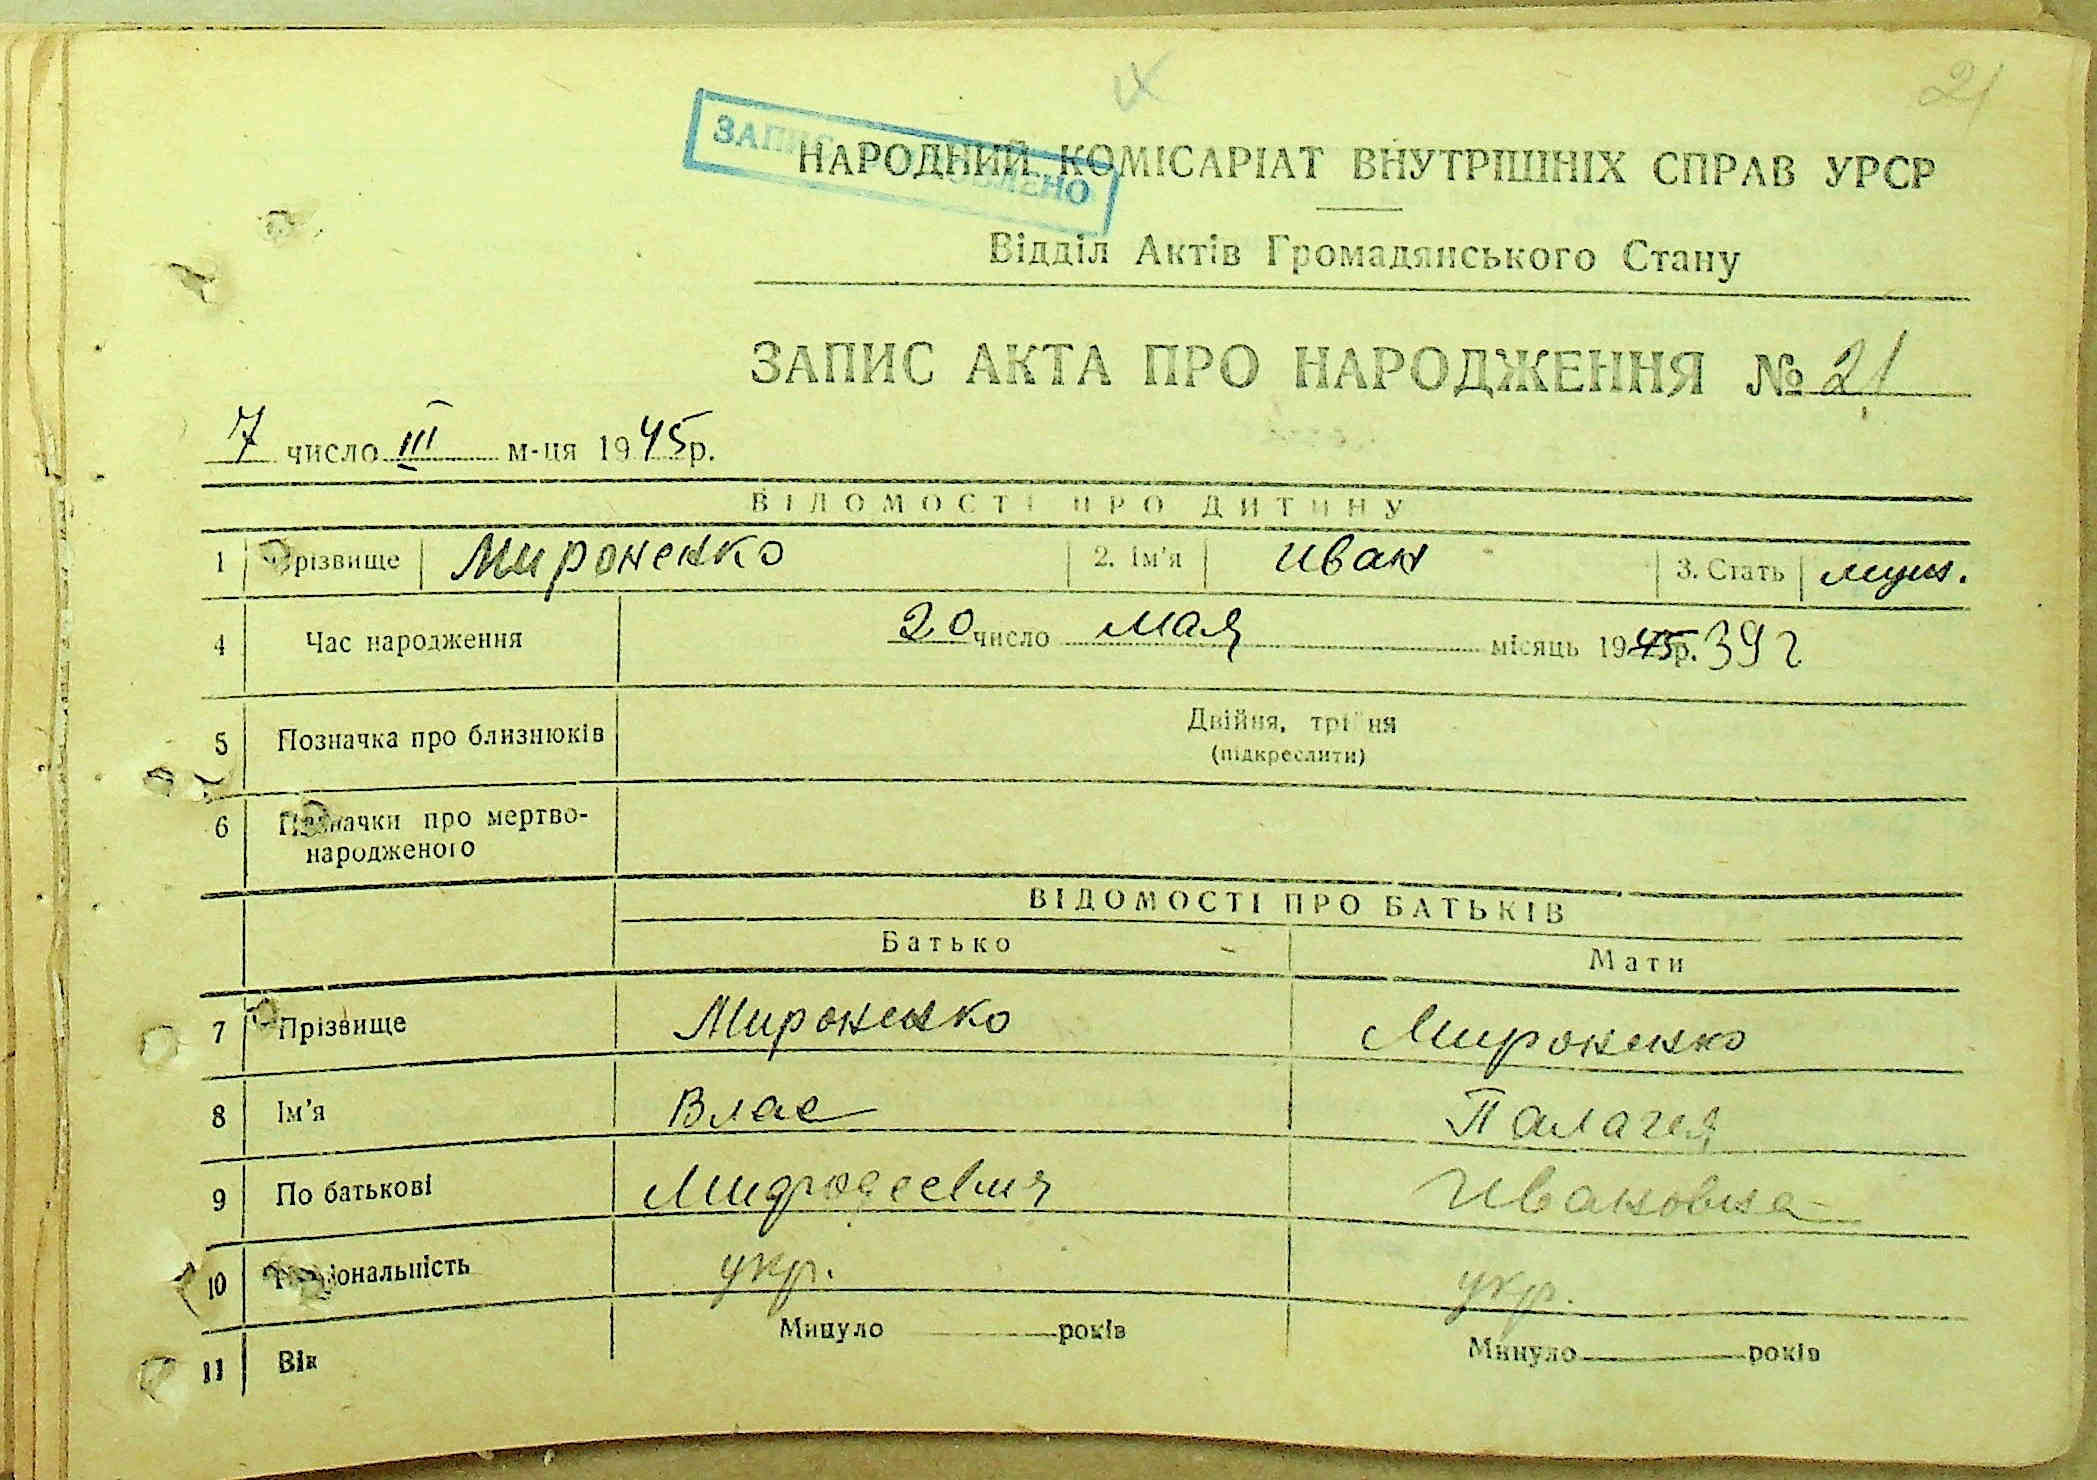 21
НАРОДНИЙ КОМІСАРІАТ ВНУТРІШНІХ СПРАВ УРСР
Відділ Актів Громадянського Стану
ЗАПИС АКТА ПРО НАРОДЖЕННЯ № 21
7 число III м-ця 1945р.
ВІДОМОСТІ ПРО ДИТИНУ
1 Прізвище Мироненко 2. Ім'я Иван 3. Стать муж.
4 Час народження 20 число мая місяць 1945р. 39 г
5 Позначка про близнюків Двійня, трійня
(підкреслити)
6 Позначки про мертво-
народженого
ВІДОМОСТІ ПРО БАТЬКІВ
Батько Мати
7 Прізвище Мироненко Мироненко
8 Ім'я Влас Палагея
9 По батькові Ивановна
10 Національність укр. укр.
11 Вік Минуло років Минуло років